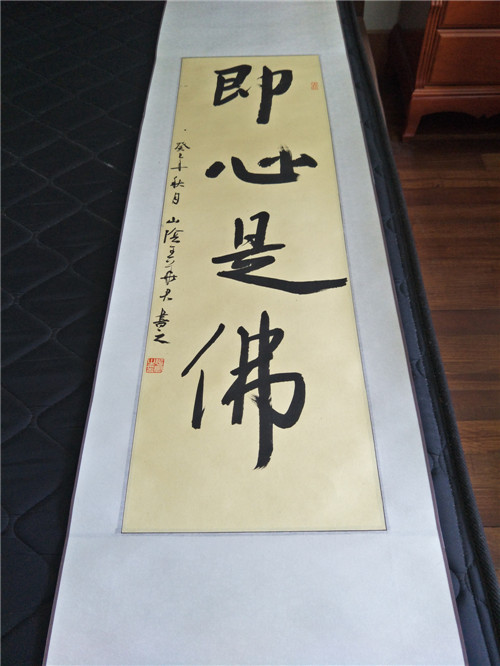 即心是佛
癸巳年秋月 山陰王 書之